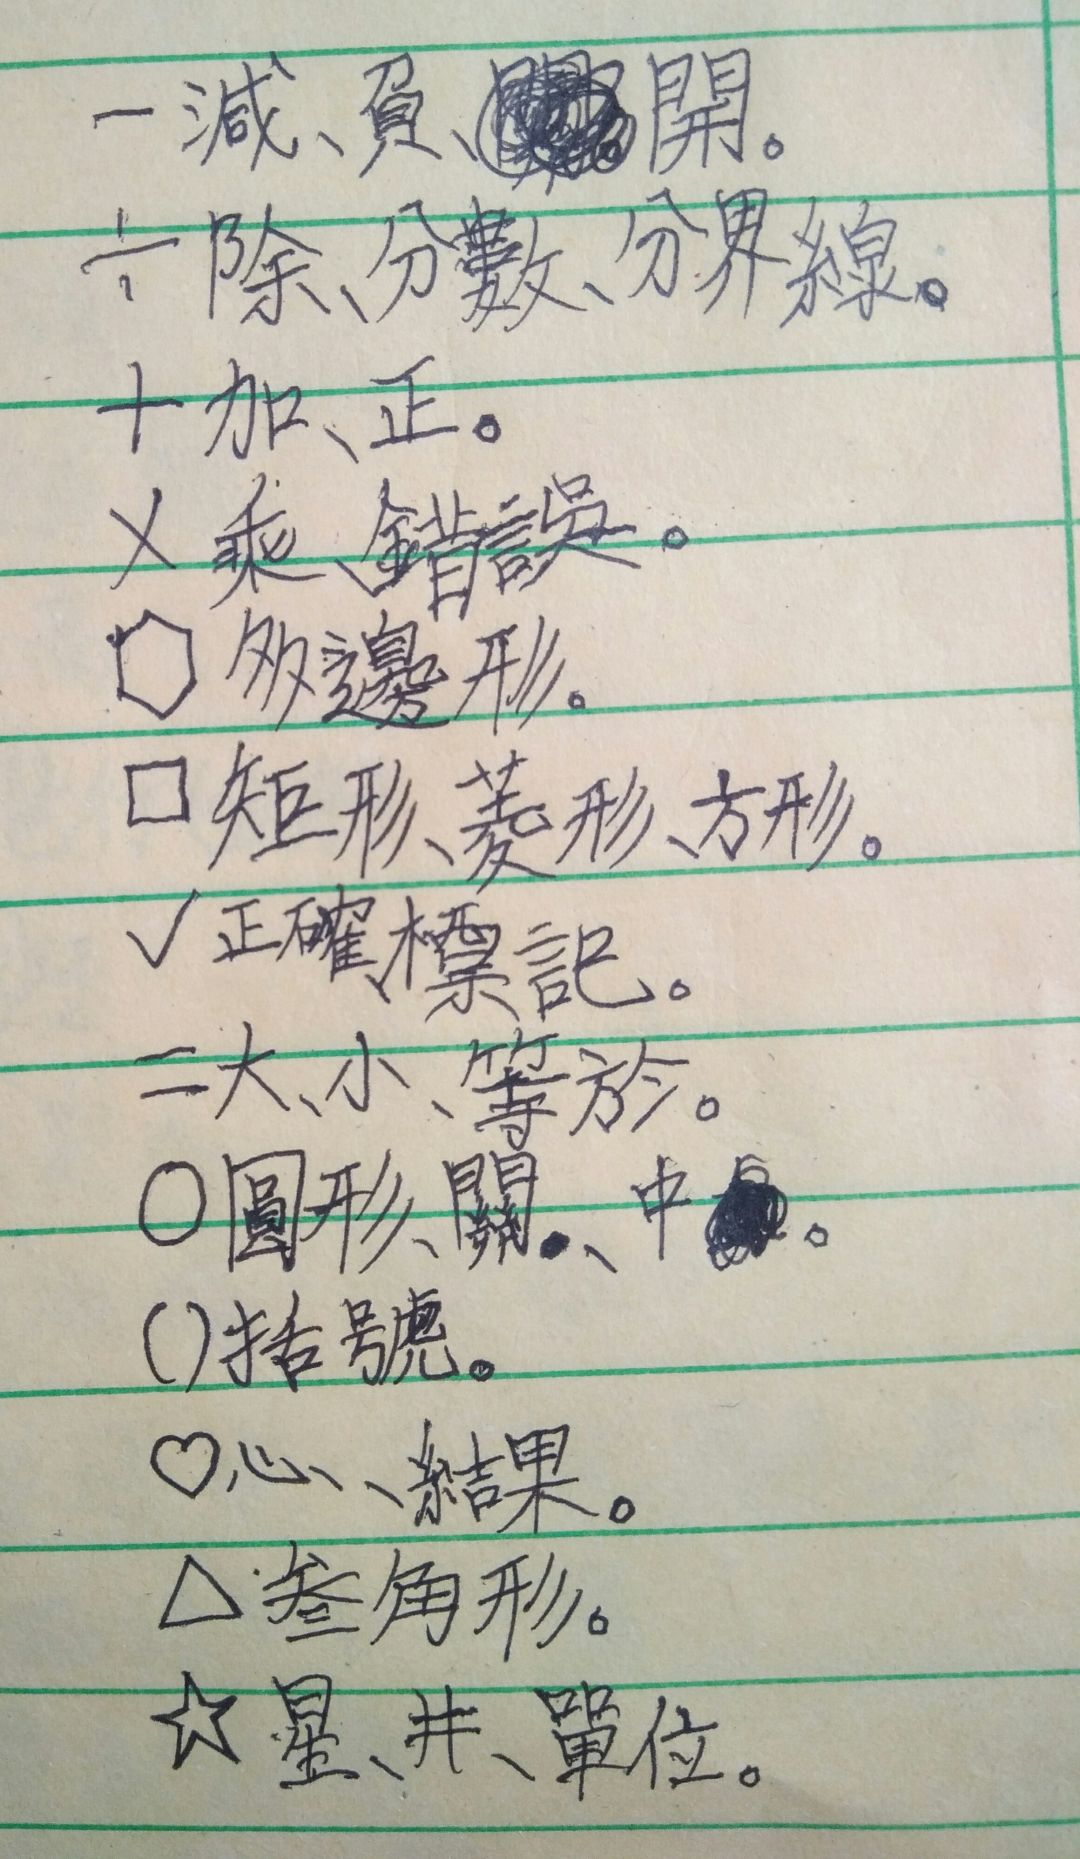 一減、負、開。
÷除、分數、分界線。
十加、正。
×乘、錯誤。
⬡多邊形。
□矩形、菱形、方形。
✓正確、標記。
二大、小、等於。
○圓形、關、中。
()括號。
♡心、、結果。
△叁角形。
☆星、井、單位。